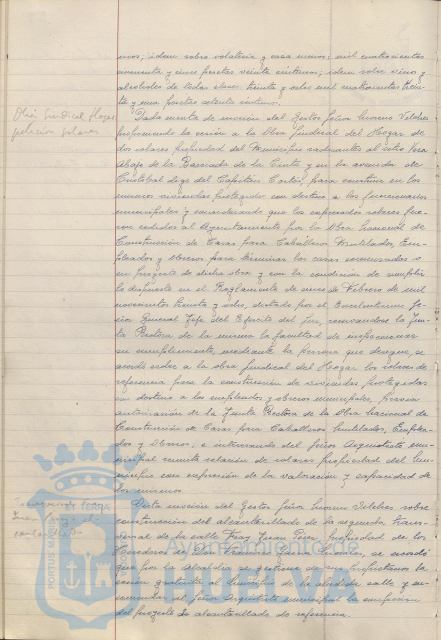 nos; idem sobre volateria y caza menor: mil cuatrocientas
cincuenta y cinco pesetas veinte centimos; idem sobre vinos y
alcoholes de todas clases: treinta y ocho mil cuatrocientas trein-
ta y una pesetas setenta centimos.
Obra Sindical Hogar
peticion solares
Dada cuenta de mocion del Gestor Señor Moreno Vilches
proponiendo la cesion a la Obra Sindical del Hogar de
dos solares propiedad del Municipio radicantes al sitio Vega
Abajo de la Barriada de la Cinta y en la avenida de
Cristobal digo del Capitan Cortés, para construir en los
mismos viviendas protegidas con destino a los funcionarios
municipales y considerando que los expresados solares fue-
ron cedidos al Ayuntamiento por la Obra Nacional de
Construccion de Casas para Caballeros Mutilados, Em-
pleados y Obreros para terminar las casas comenzadas
en proyecto de dicha obra y con la condicion de cumplir
lo dispuesto en el Reglamento de once de Febrero de mil
novecientos treinta y ocho, dictado por el Excelentisimo Se-
ñor General Jefe del Ejercito del Sur, reservandose la Jun-
ta Rectora de la misma la facultad de inspeccionar
su cumplimiento, mediante la persona que designe, se
acordó ceder a la Obra Sindical del Hogar los solares de
referencia para la construccion de viviendas protegidas
con destino a los empleados y obreros municipales, previa
autorizacion de la Junta Rectora de la Obra Nacional de
Construccion de Casas para Caballeros Mutilados, Emplea-
dos y Obreros, e interesando del señor Arquitecto mu-
nicipal remita relacion de solares propiedad del Mu-
nicipio con expresion de la valoracion y capacidad de
los mismos.
Vista mocion del Gestor señor Moreno Vilches sobre
construccion del alcantarillado de la segunda trans-
versal de la calle Fray Juan Perez propiedad de los
Herederos de
que por la Alcaldia se gestione de sus propietarios la
cesion gratuita al Municipio de la aludida calle y en-
comendar al señor Arquitecto municipal la confeccion
del proyecto de alcantarillado de referencia.
Ayuntamiento de
HUELVA
PORTUS